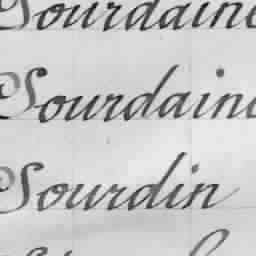 Sourdaine
Sourdaine
Sourdin